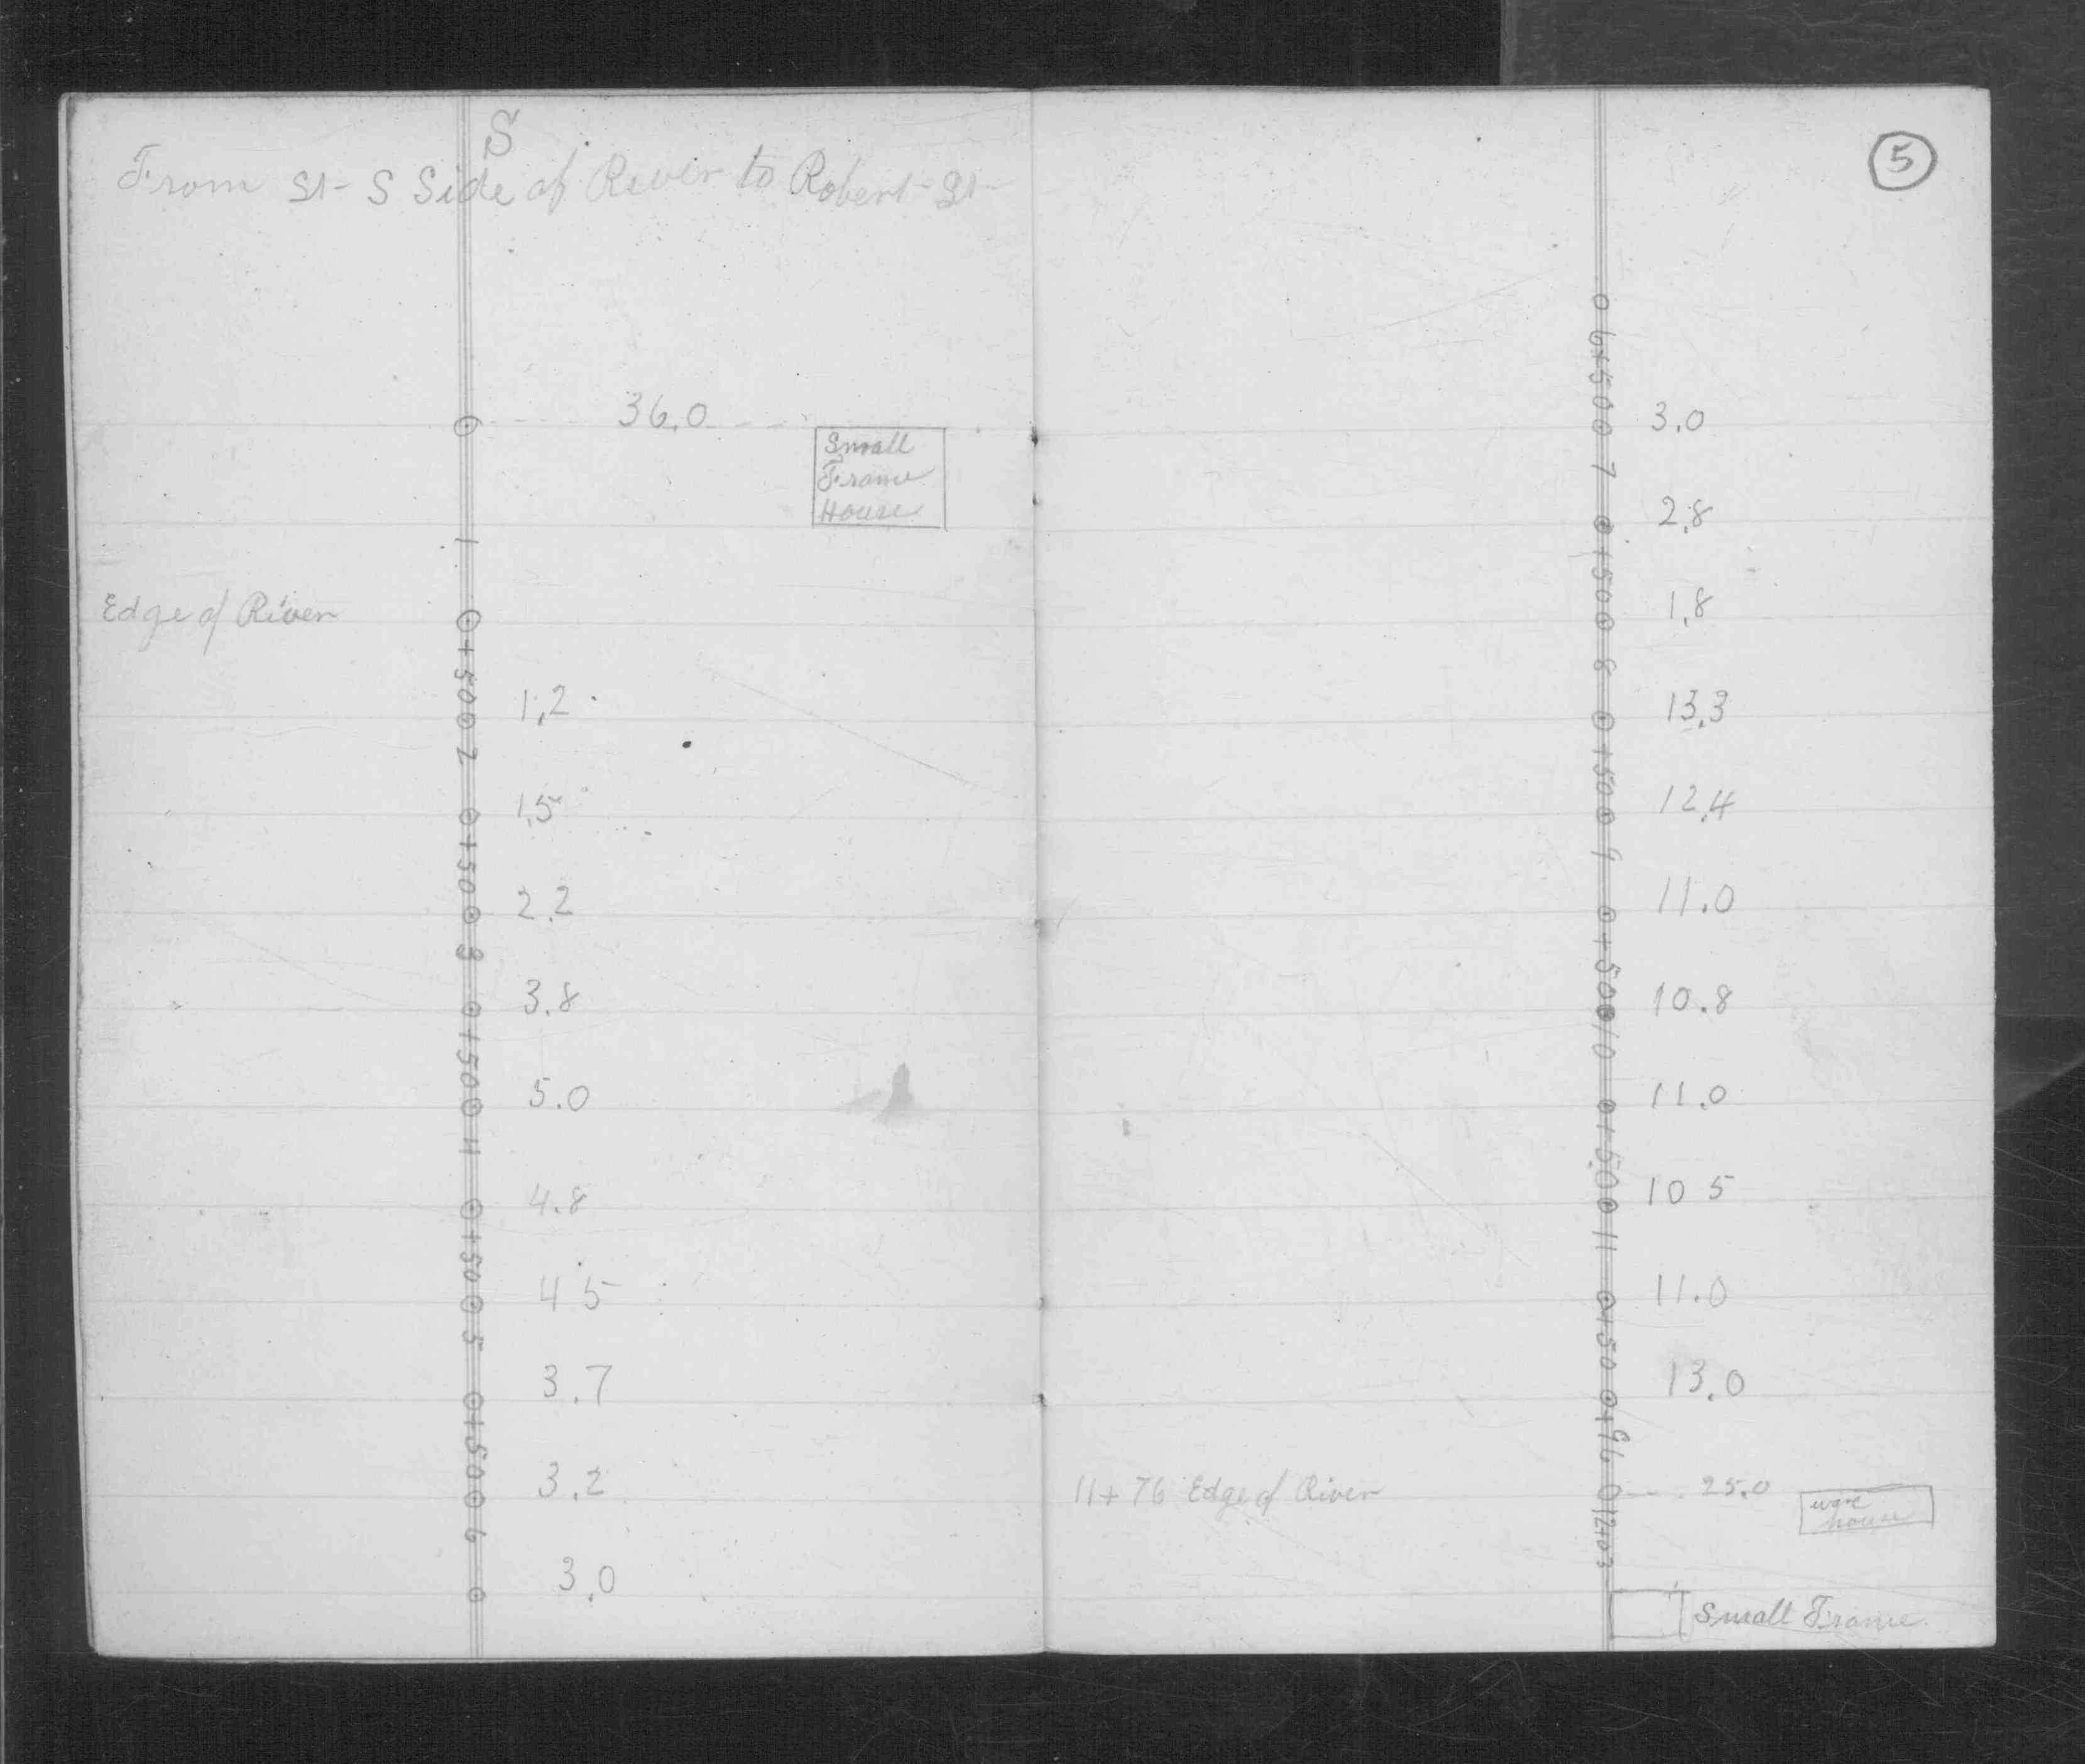 S
From St - S Side of River to Robert St
36.0
Small
Frame
House
1
Edge of River
+50
1,2
2
1,5
+50
2.2
3
3.8
+50
5.0
4
4.8
+50
4 5
5
3.7
+50
3.2
6
3.0
5
6+50
3.0
7
2,8
+50
1,8
8
13,3
+50
12,4
9
11.0
+50
10.8
10
11.0
+50
10 5
11
11.0
+50
13.0
+96
11+76 Edge of River
25.0
ware
house
12+03
Small Frame